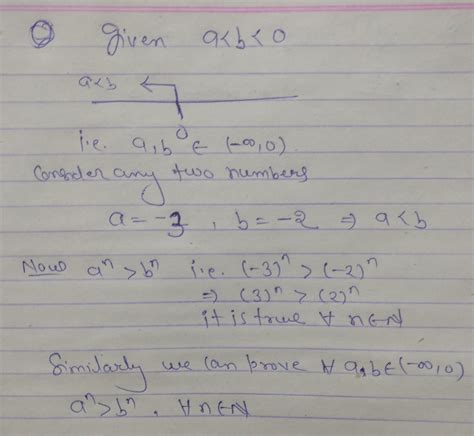 Given a<b<0
a<b
0
i.e. a,b ∈ (-∞,0).
Consider any two numbers
a = -3 , b = -2 ⇒ a<b
Now aⁿ > bⁿ i.e. (-3)ⁿ > (-2)ⁿ
⇒ (3)ⁿ > (2)ⁿ
it is true ∀ n∈N
Similarly we can prove ∀ a,b∈(-∞,0)
aⁿ>bⁿ. ∀n∈N